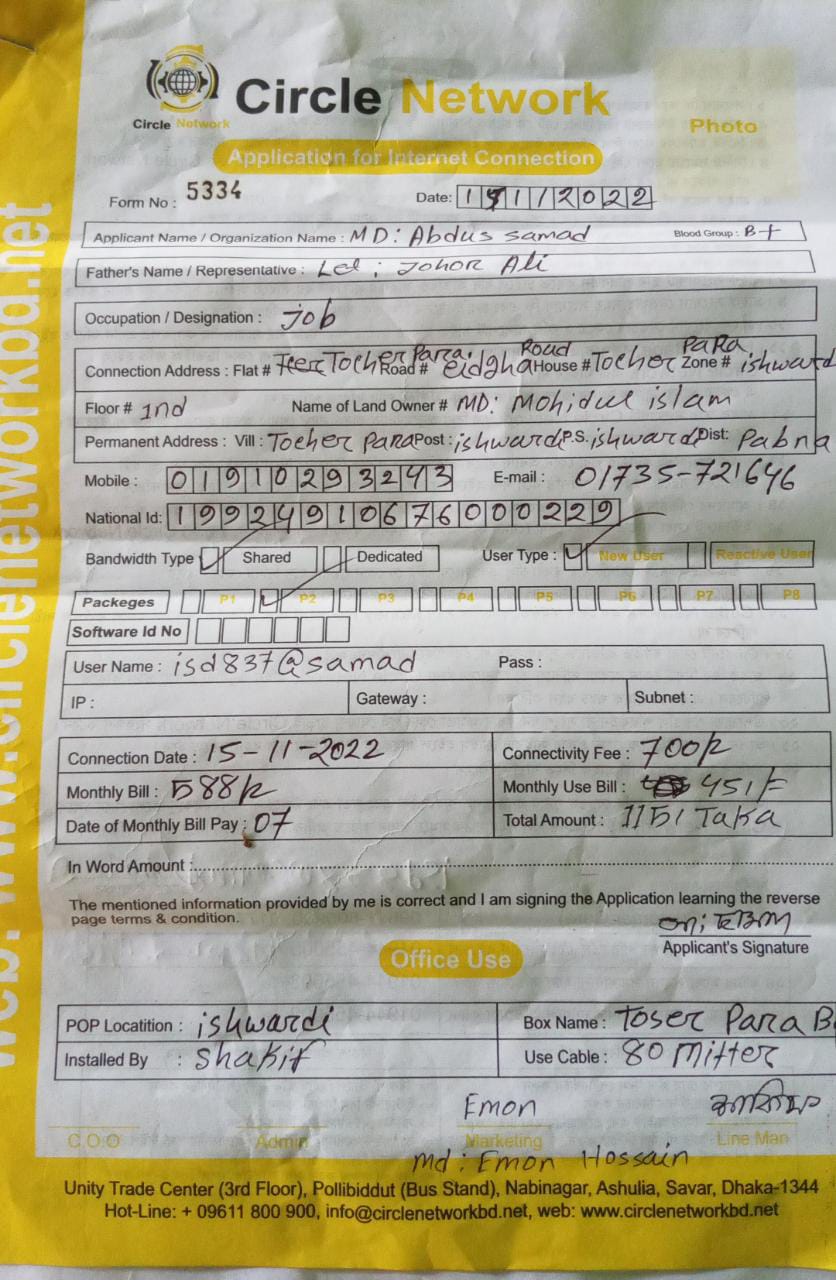 Circle Network
Circle Network
Photo
Application for Internet Connection
Form No : 5334
Date: 15/11/2022
Applicant Name / Organization Name : MD: Abdus samad Blood Group : B+
Father's Name / Representative : Johor Ali
Occupation / Designation : job
Connection Address : Flat # Tocher Para. Road # eidgha Road House # Tocher PaRa Zone # ishward
Floor # 1nd Name of Land Owner # MD: Mohidul islam
Permanent Address : Vill : Tocher Para Post : ishwardi P.S. ishwardi Dist: Pabna
Mobile : 01910293243 E-mail : 01735-721646
National Id: 19924910676000229
Bandwidth Type Shared Dedicated User Type : New User Reactive User
Packeges P1 P2 P3 P4 P5 P6 P7 P8
Software Id No
User Name : isd837@samad Pass :
IP : Gateway : Subnet :
Connection Date : 15-11-2022 Connectivity Fee : 700/=
Monthly Bill : 588/= Monthly Use Bill : 451/=
Date of Monthly Bill Pay : 07 Total Amount : 1151 Taka
In Word Amount :
The mentioned information provided by me is correct and I am signing the Application learning the reverse
page terms & condition.
Applicant's Signature
Office Use
POP Locatition : ishwardi Box Name : Toser Para B
Installed By : Shakif Use Cable : 80 Mitter
Emon
C.O.O Admin Marketing Line Man
Md : Emon Hossain
Unity Trade Center (3rd Floor), Pollibiddut (Bus Stand), Nabinagar, Ashulia, Savar, Dhaka-1344
Hot-Line: + 09611 800 900, info@circlenetworkbd.net, web: www.circlenetworkbd.net
web: www.circlenetworkbd.net